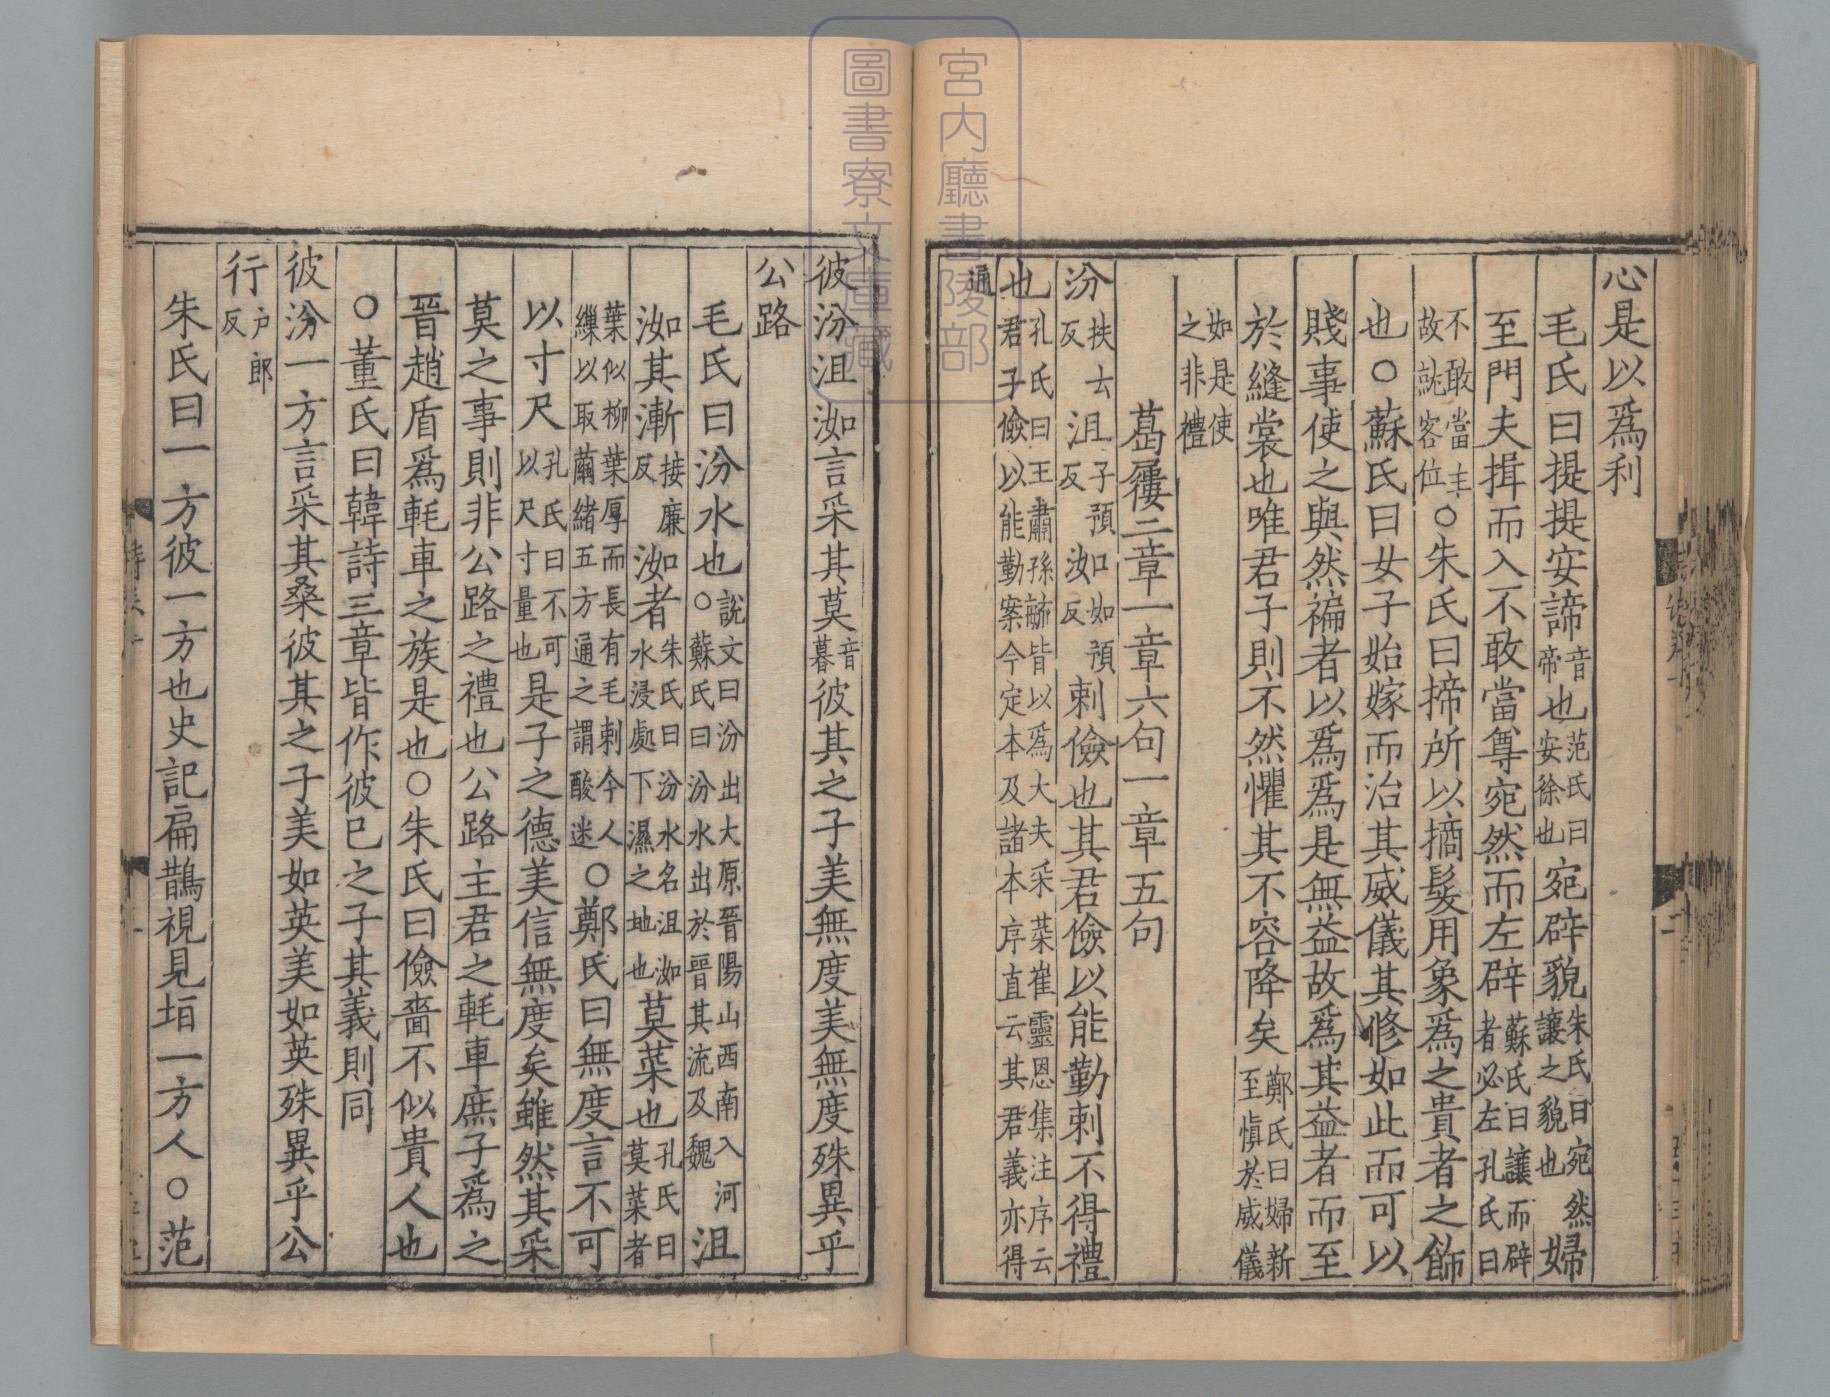 心是以為利
毛氏曰提提安諦音帝也范氏曰安徐也宛辟貌朱氏曰宛然讓之貌也婦
至門夫揖而入不敢當尊宛然而左辟蘇氏曰讓而辟者必左孔氏曰
不敢當主故就客位○朱氏曰揥所以摘髮用象為之貴者之飾
也○蘇氏曰女子始嫁而治其威儀其修如此而可以
賤事使之與然褊者以為為是無益故為其益者而至
於縫裳也唯君子則不然懼其不容降矣鄭氏曰婦新至慎於威儀
如是使之非禮
葛屨二章一章六句一章五句
汾扶云反沮子預反洳如預反刺儉也其君儉以能勤刺不得禮
也孔氏曰王肅孫毓皆以為大夫采菜崔靈恩集注序云君子儉以能勤案今定本及諸本序直云其君義亦得
通
彼汾沮洳言采其莫音暮彼其之子美無度美無度殊異乎
公路
毛氏曰汾水也○說文曰汾出大原晉陽山西南入河蘇氏曰汾水出於晉其流及魏沮
洳其漸接廉反洳者朱氏曰汾水名沮洳水浸處下濕之地也莫菜也孔氏曰莫菜者
葉似柳葉厚而長有毛刺今人繅以取繭緒五方通之謂酸迷○鄭氏曰無度言不可
以寸尺孔氏曰不可以尺寸量也是子之德美信無度矣雖然其采
莫之事則非公路之禮也公路主君之軞車庶子為之
晉趙盾為軞車之族是也○朱氏曰儉嗇不似貴人也
○董氏曰韓詩三章皆作彼已之子其義則同
彼汾一方言采其桑彼其之子美如英美如英殊異乎公
行戶郎反
朱氏曰一方彼一方也史記扁鵲視見垣一方人○范